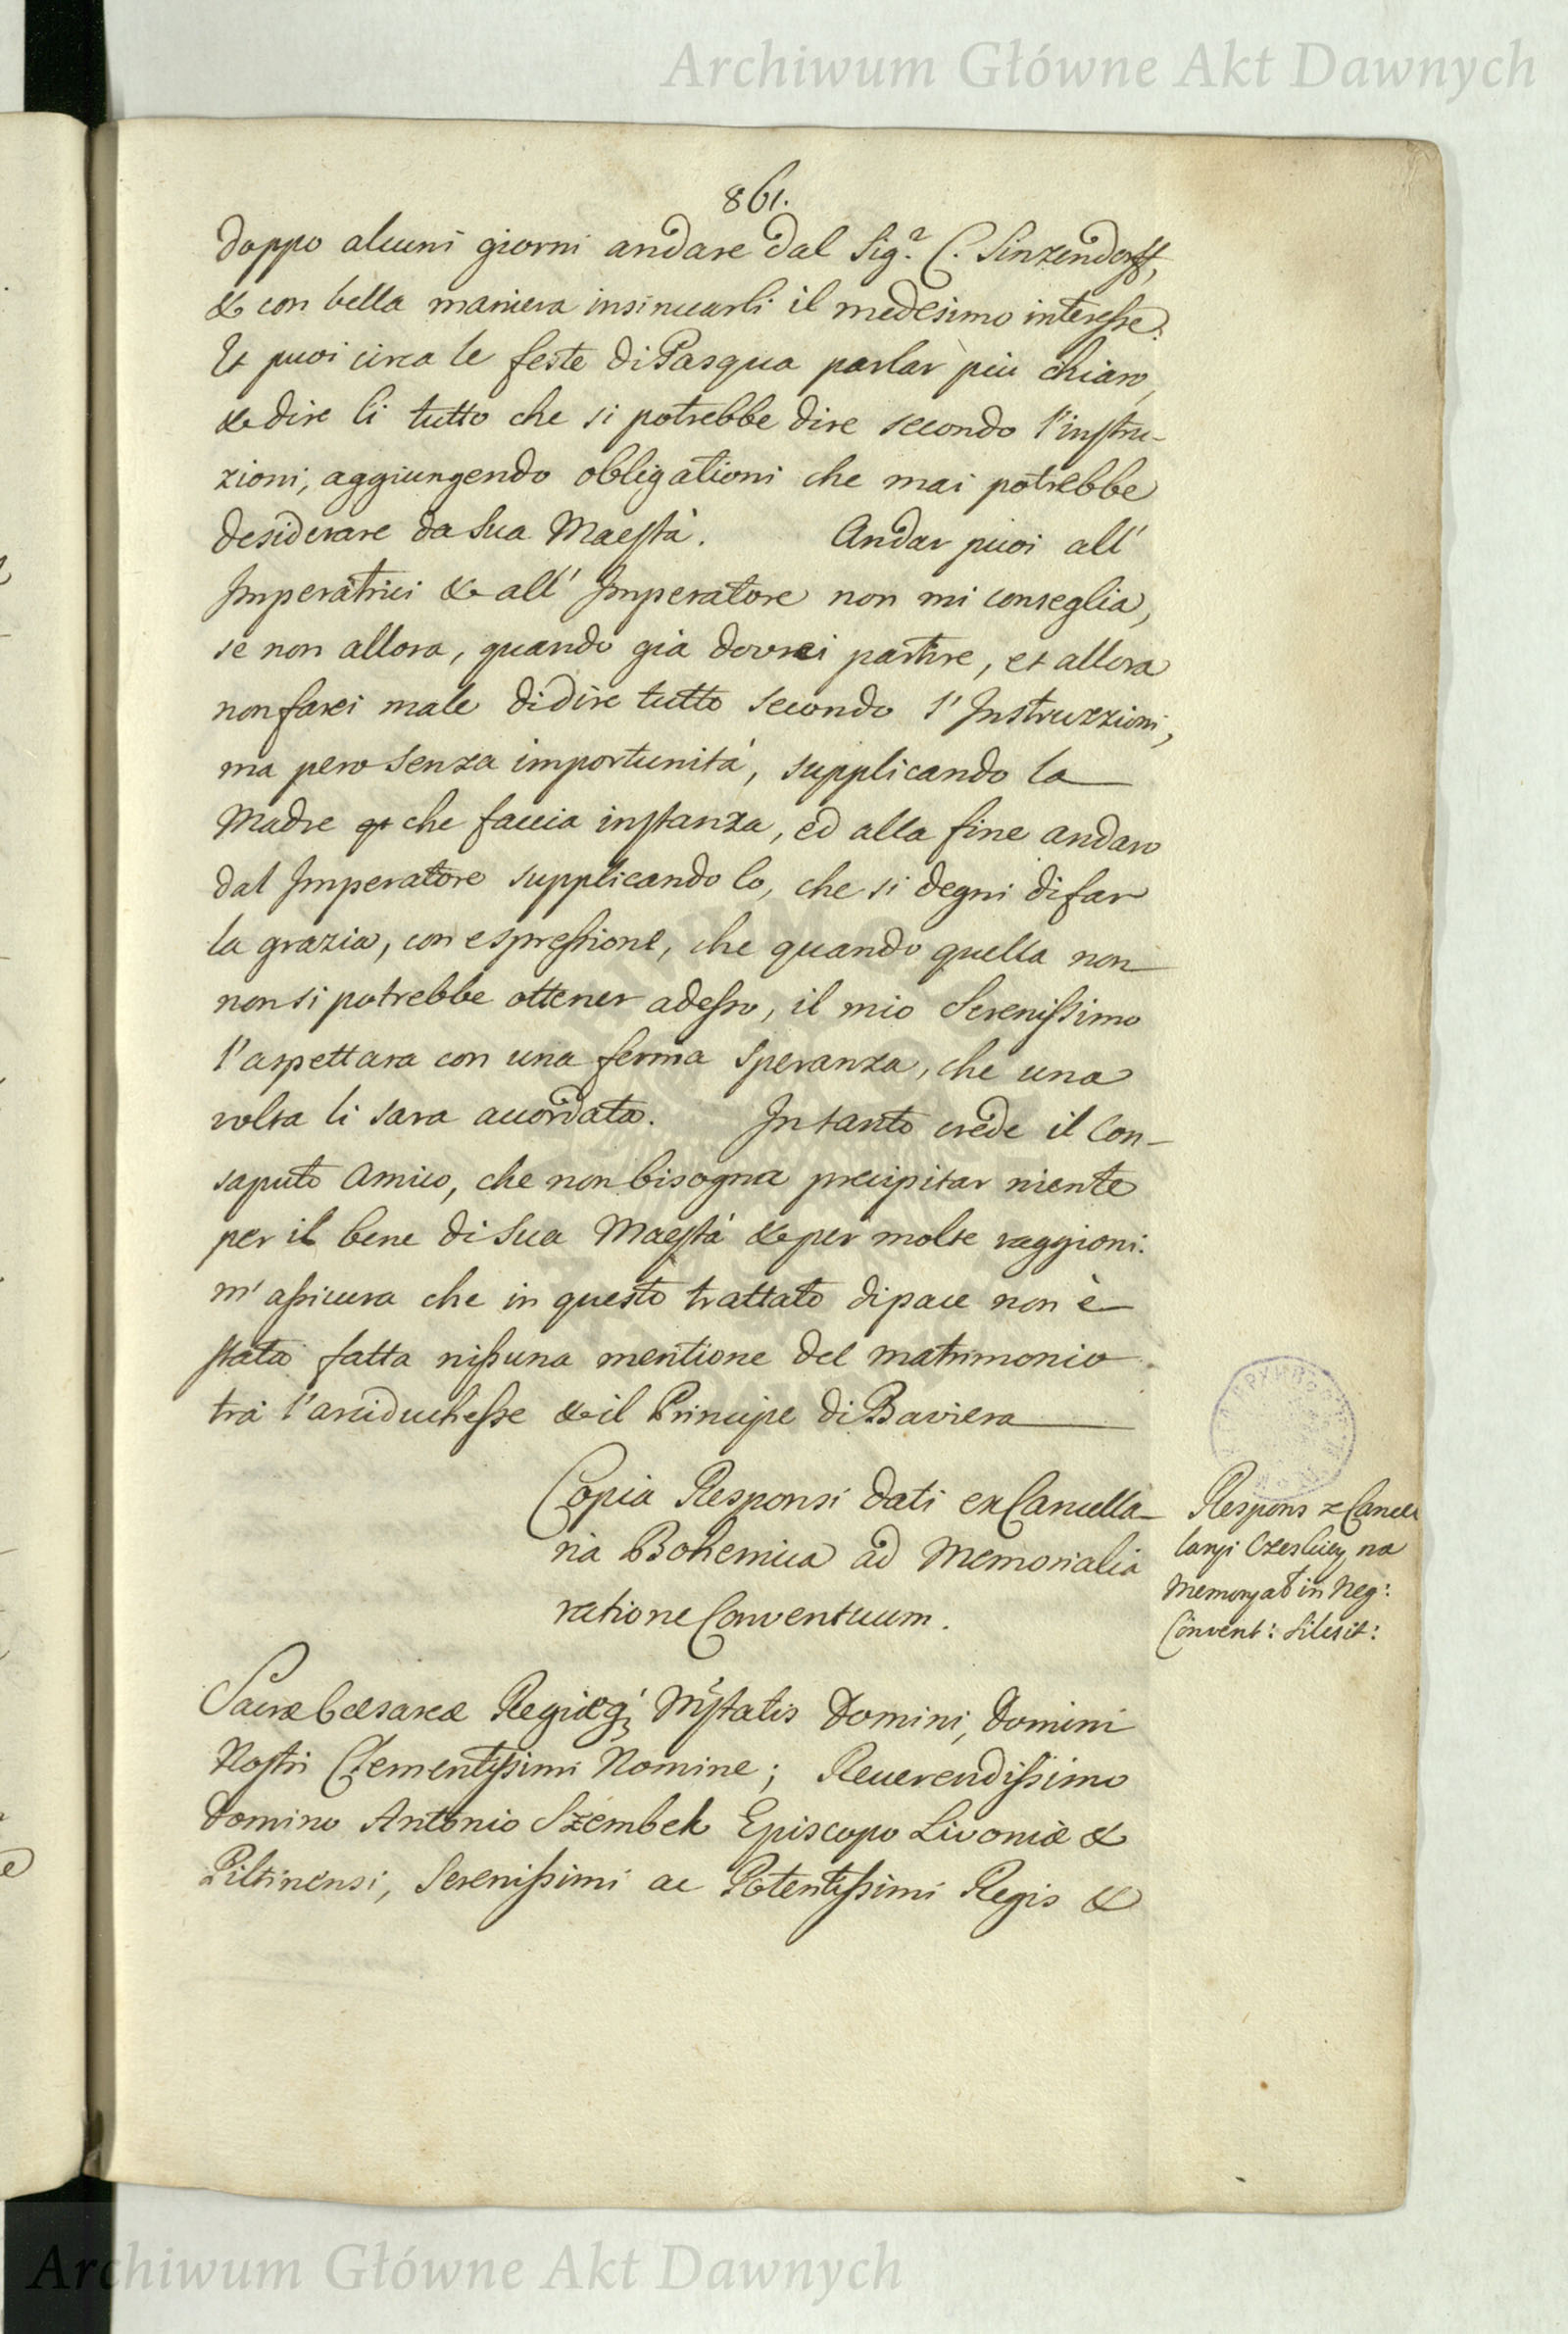 Archiwum Główne Akt Dawnych
861.
doppo alcuni giorni andare dal Sig.r C. Sinzendorff,
& con bella maniera insinuarli il medesimo interesse.
Et puoi circa le feste di Pasqua parlar più chiaro,
& dire li tutto che si potrebbe dire secondo l'instru-
zioni, aggiungendo obligationi che mai potrebbe
desiderare da Sua Maestà. Andar puoi all'
Imperatrici & all' Imperatore non mi conseglia,
se non allora, quando già dovrei partire, et allora
non farei male di dire tutto secondo l'Instruzzioni,
ma pero senza importunità, supplicando la
Madre che faccia instanza, ed alla fine andaro
dal Imperatore supplicando lo, che si degni di far
la grazia, con espressione, che quando quella non
non si potrebbe ottener adesso, il mio Serenissimo
l'aspettara con una ferma speranza, che una
volta li sara accordata. Intanto crede il Con-
saputo Amico, che non bisogna precipitar niente
per il bene di Sua Maestà & per molte raggioni.
m'assicura che in questo trattato di pace non è
stata fatta nissuna mentione del matrimonio
trà l'arciduchesse & il Principe di Baviera
Copia Responsi dati ex Cancella-
ria Bohemica ad Memorialia
ratione Conventuum.
Respons z Cancel
laryi Czeskiey na
Memoryał in Neg:
Convent: Silesit:
Sacræ Cæsareæ Regiæq; Mstatis Domini, Domini
Nostri Clementissimi Nomine; Reverendissimo
Domino Antonio Szembek Episcopo Livoniæ &
Piltinensi, Serenissimi ac Potentissimi Regis &
Archiwum Główne Akt Dawnych